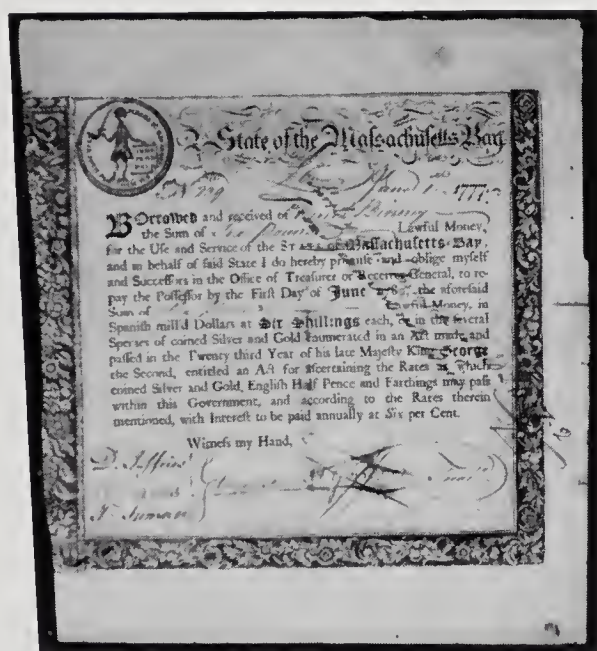 State of the Massachusetts-Bay
Nº 229 June 1 1777
BOrrowed and received of Binny
the Sum of Lawful Money,
for the Use and Service of the STATE of Massachusetts-Bay,
and in behalf of said State I do hereby promise and oblige myself
and Successors in the Office of Treasurer or Receiver-General, to re-
pay the Possessor by the First Day of June the aforesaid
Sum of Lawful Money, in
Spanish mill'd Dollars at Six Shillings each, or in the several
Species of coined Silver and Gold enumerated in an Act made and
passed in the Twenty third Year of his late Majesty King George
the Second, entitled an Act for ascertaining the Rates at which
coined Silver and Gold, English Half Pence and Farthings may pass
within this Government, and according to the Rates therein
mentioned, with Interest to be paid annually at Six per Cent.
Witness my Hand,
D. Jeffries